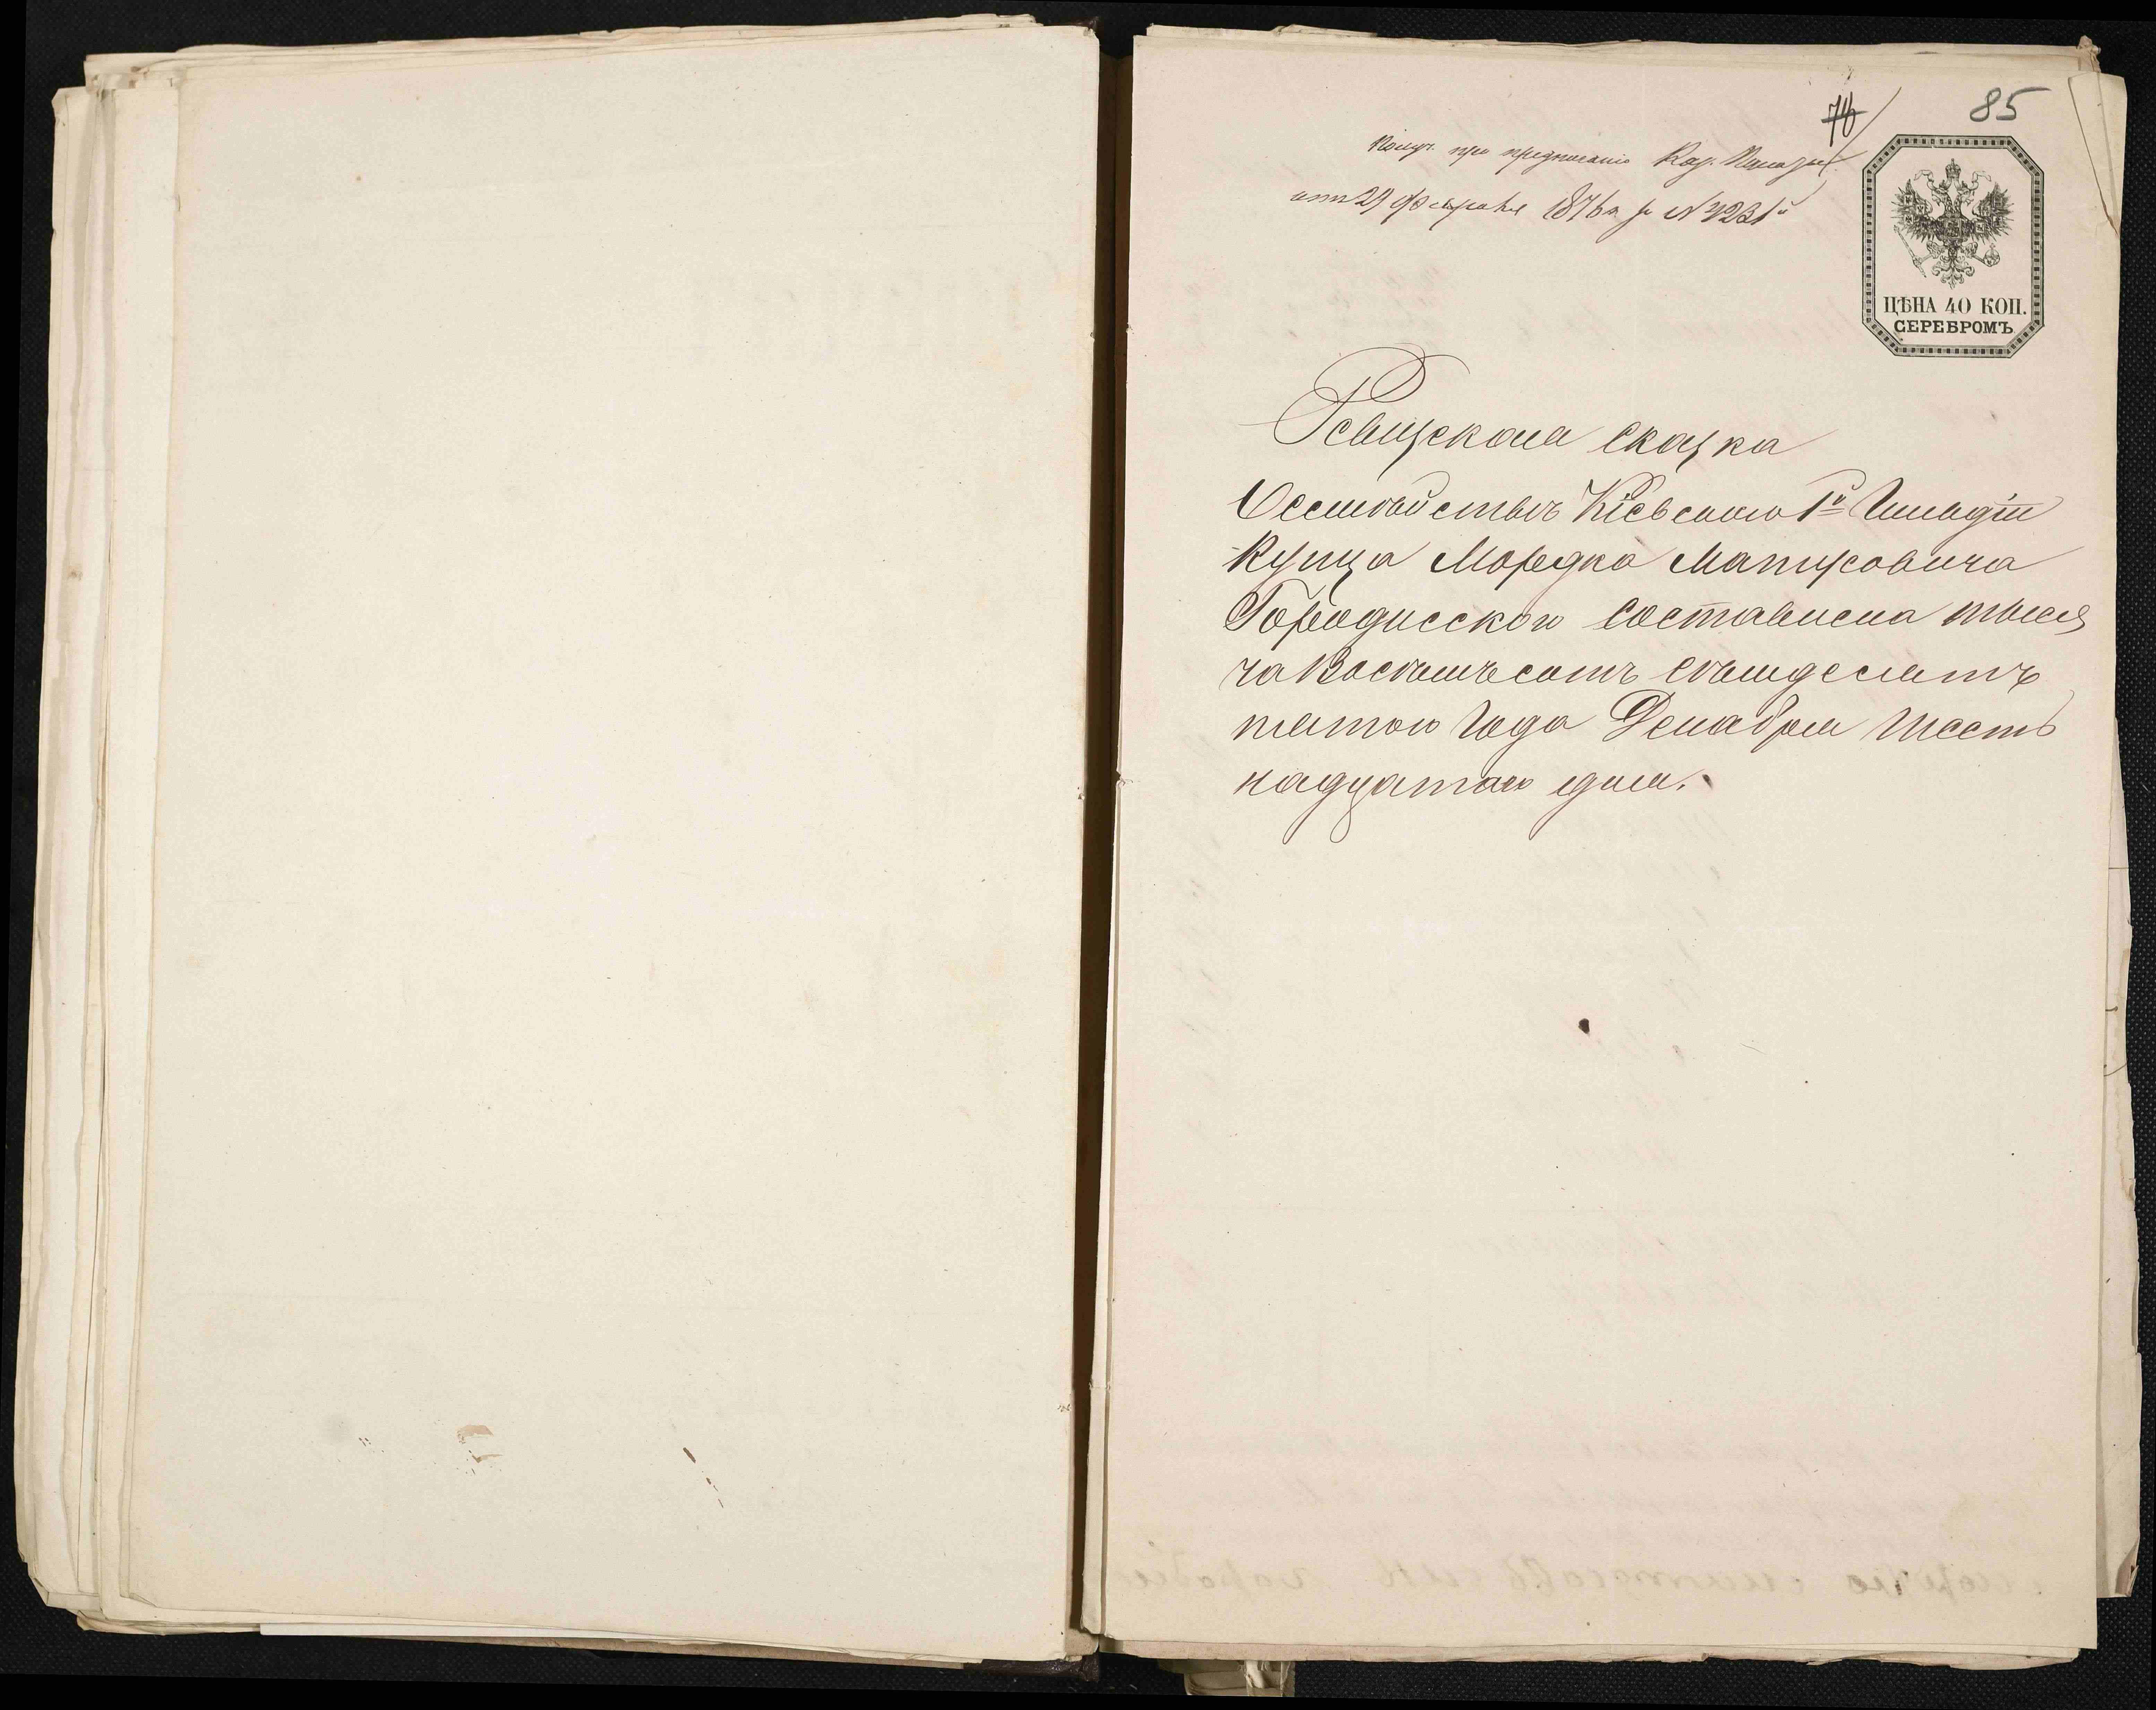 76
85
Получ. при предписаніи Каз. Палаты
отъ 29 февраля 1876 г. за № 4231
ЦѢНА 40 КОП.
СЕРЕБРОМЪ
Ревизская сказка
О семѣйствѣ Кіевского 1й Гильдіи
Купца Мордка Матусовича
Городисского составлена тыся
ча Восѣмъсотъ сѣмдесятъ
пятого Года Декабря Шест
надцатого дня.